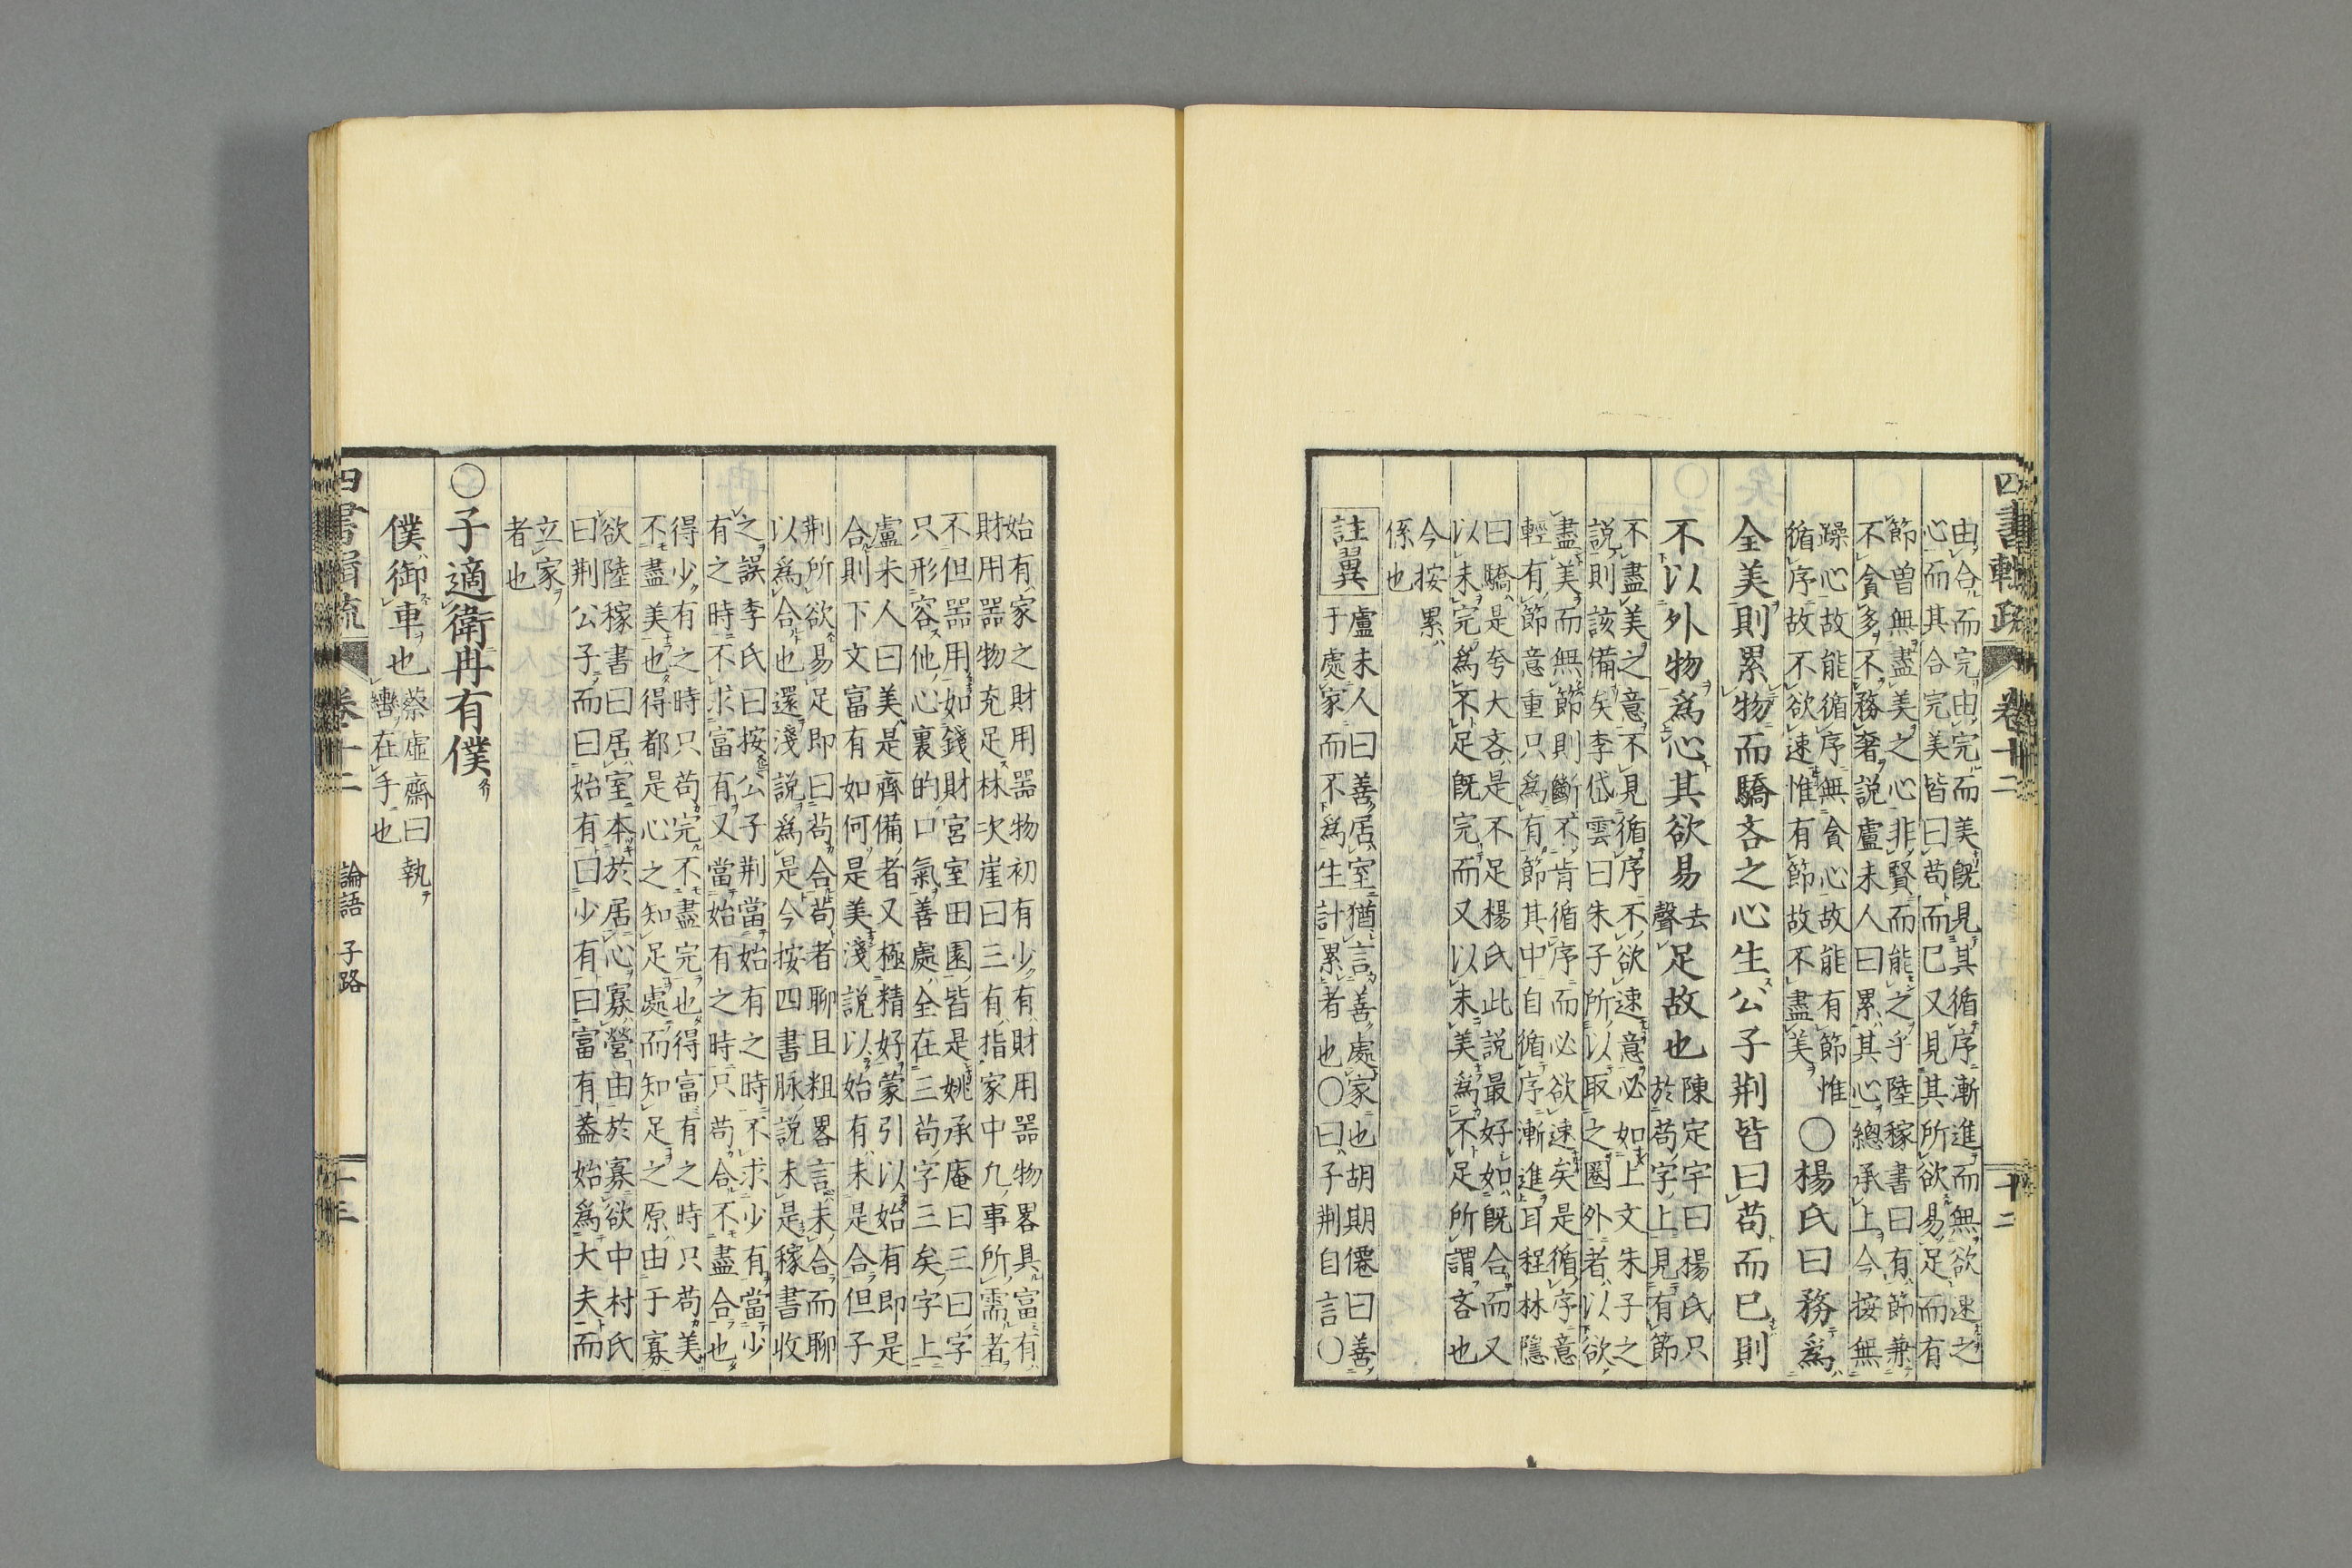 四書輯疏 卷十二 十二
由合而完由完而美既見其循序漸進而無欲速之
心而其合完美皆曰苟而已又見其所欲易足而有
節曾無盡美之心非賢而能之乎陸稼書曰有節兼
不貪多不務奢説盧未人曰累其心總承上今按無
躁心故能循序無貪心故能有節惟
循序故不欲速惟有節故不盡美
○楊氏曰務爲
全美則累物而驕吝之心生公子荆皆曰苟而已則
不以外物爲心其欲易去聲足故也
陳定宇曰楊氏只
於苟字上見有節
不盡美之意不見循序不欲速意必如上文朱子之
説則該備矣李岱雲曰朱子所以取之圏外者以欲
盡美而無節則斷不肯循序而必欲速矣是循序意
輕有節意重只爲有節其中自循序漸進耳程林隱
曰驕是夸大吝是不足楊氏此説最好如既合而又
以未完爲不足既完而又以未美爲不足所謂吝也
今按累
係也
註翼
盧未人曰善居室猶言善處家也胡期僊曰善
于處家而不爲生計累者也○曰子荆自言○
始有家之財用器物初有少有財用器物畧具富有
財用器物充足林次崖曰三有指家中凡事所需者
不但器用如錢財宮室田園皆是姚承庵曰三曰字
只形容他心裏的口氣善處全在三苟字三矣字上
盧未人曰美是齊備者又極精好蒙引以始有即是
合則下文富有如何是美淺説以始有未是合但子
荆所欲易足即曰苟合苟者聊且粗畧言未合而聊
以爲合也還淺説爲是今按四書脉説未是稼書收
之誤李氏曰按公子荆當始有之時不求少有當少
有之時不求富有又當始有之時只苟合不盡合也
得少有之時只苟完不盡完也得富有之時只苟美
不盡美也得都是心之知足處而知足之原由于寡
欲陸稼書曰居室本於居心寡營由於寡欲中村氏
曰荆公子而曰始有曰少有曰富有葢始爲大夫而
立家
者也
○子適衛冉有僕
僕御車也
蔡虛齋曰執
轡在手也
四書輯疏 卷十二 論語 子路 十三